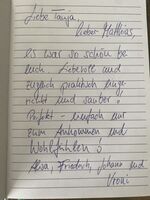 Liebe Tanja,
lieber Matthias,
es war so schön bei
euch. Liebevoll und
zugleich praktisch einge-
richtet und sauber!
Perfekt - einfach nur
zum Ankommen und
Wohlfühlen!
Friedrich, Johanna und
Vroni